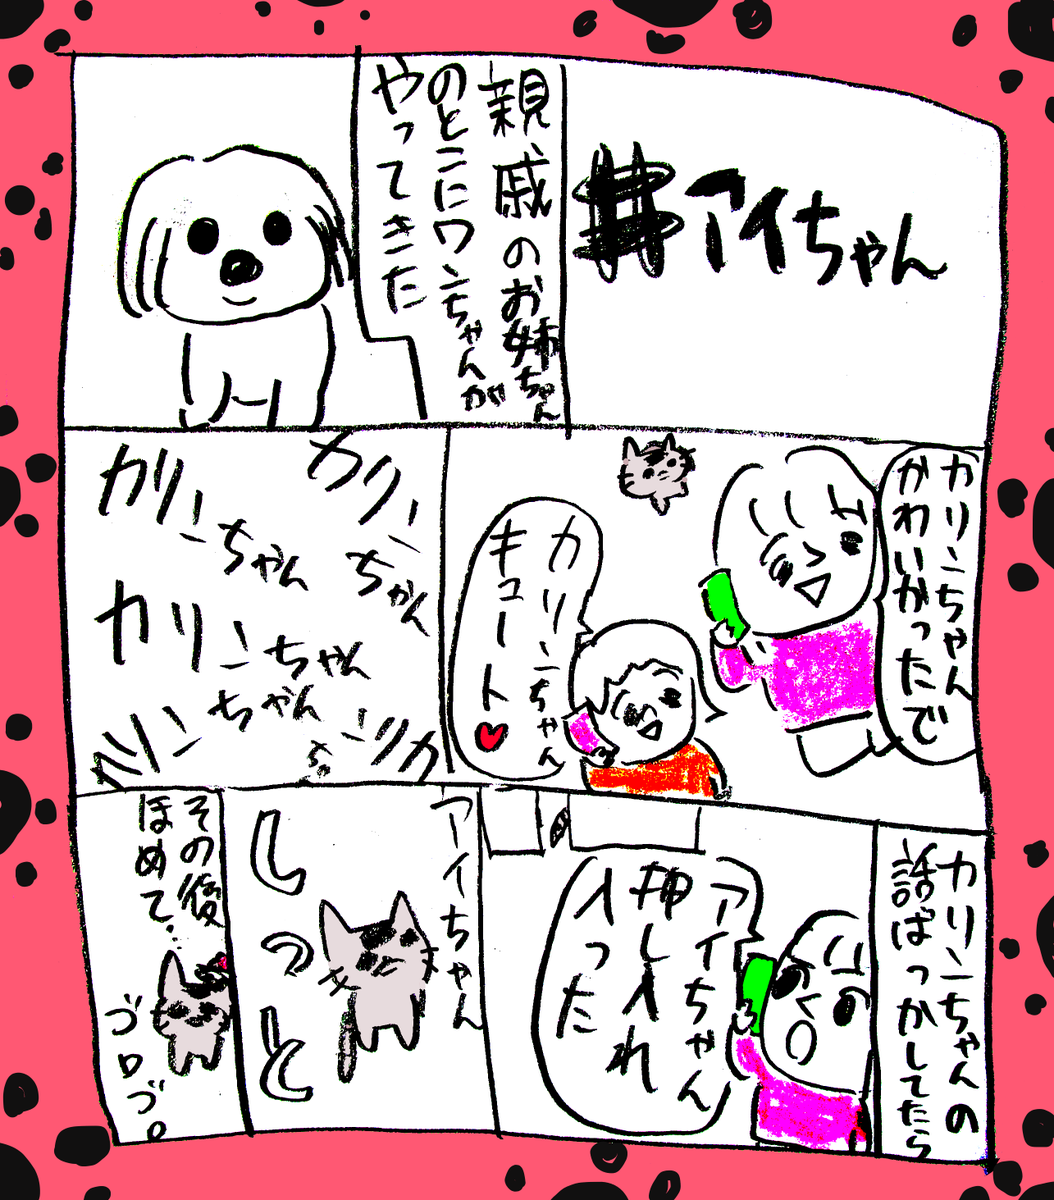 #アイちゃん
親戚のお姉ちゃん
のとこにワンちゃんが
やってきた
カリンちゃん
かわいかったで
カリンちゃん
キュート♥
カリンちゃん
カリンちゃん
カリンちゃん
ちゃん
カリンちゃんの
話ばっかしてたら
アイちゃん
押し入れ
入った
アイちゃん
しっと
その後
ほめて…
ゴロゴロ